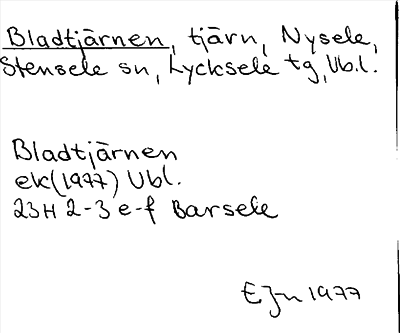 Bladtjärnen, tjärn, Nysele,
Stensele sn, Lycksele tg, Vb.l.
Bladtjärnen
ek (1977) Vbl.
23H 2-3 e-f Barsele
EJn 1977